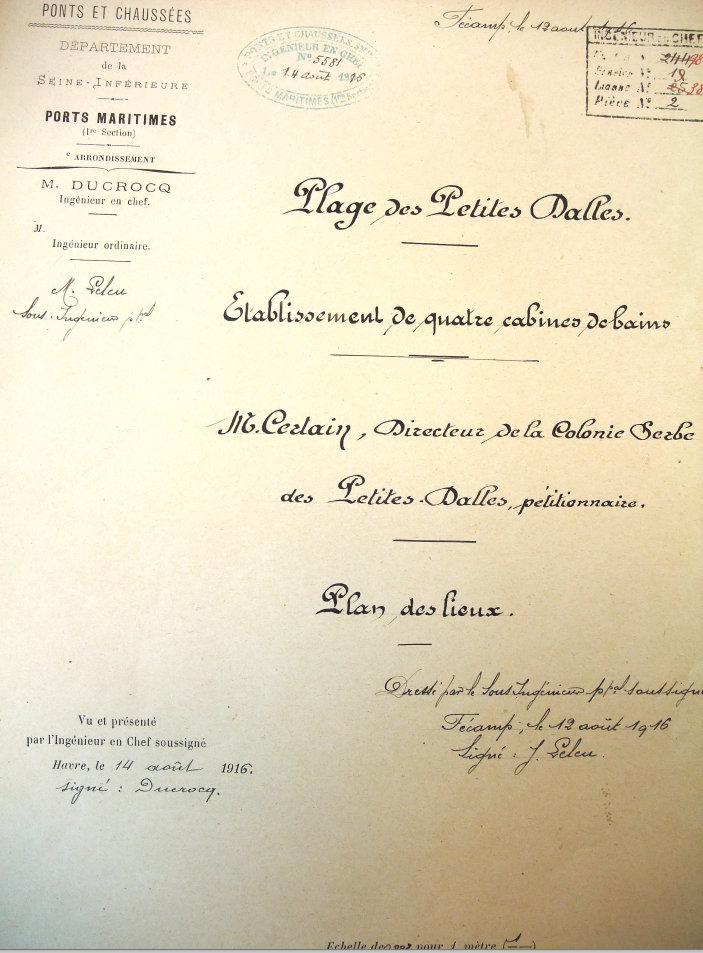 PONTS ET CHAUSSÉES
DÉPARTEMENT
de la
SEINE-INFÉRIEURE
PORTS MARITIMES
(1re Section)
e ARRONDISSEMENT
M. DUCROCQ
Ingénieur en chef.
M.
Ingénieur ordinaire.
M. Leleu
Sous-Ingénieur ppal
PONTS ET CHAUSSÉES
INGÉNIEUR EN CHEF
No 5581
Le 14 août 1916
PORTS MARITIMES (1re Section)
Fécamp, le 12 août
INGÉNIEUR EN CHEF
Dossier No 19
Liasse No
Pièce No 2
Plage des Petites Dalles.
Etablissement de quatre cabines de bains
M. Certain, Directeur de la Colonie Serbe
des Petites-Dalles, pétitionnaire.
Plan des lieux.
Dressé par le Sous Ingénieur ppal soussigné
Fécamp, le 12 août 1916
Signé : J. Leleu.
Vu et présenté
par l'Ingénieur en Chef soussigné
Havre, le 14 août 1916.
signé : Ducrocq.
Echelle de pour 1 mètre